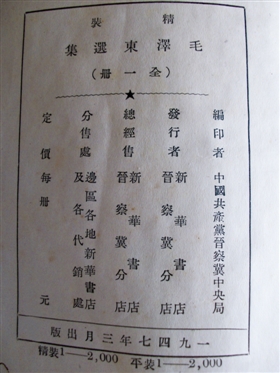 精裝
毛澤東選集
(全一冊)
★
編印者 中國共產黨晉察冀中央局
發行者 新華書店
晉察冀分店
總經售 新華書店
晉察冀分店
分售處 邊區各地新華書店
及各代銷處
定價每冊 元
一九四七年三月出版
精裝1—2,000 平装1—2,000